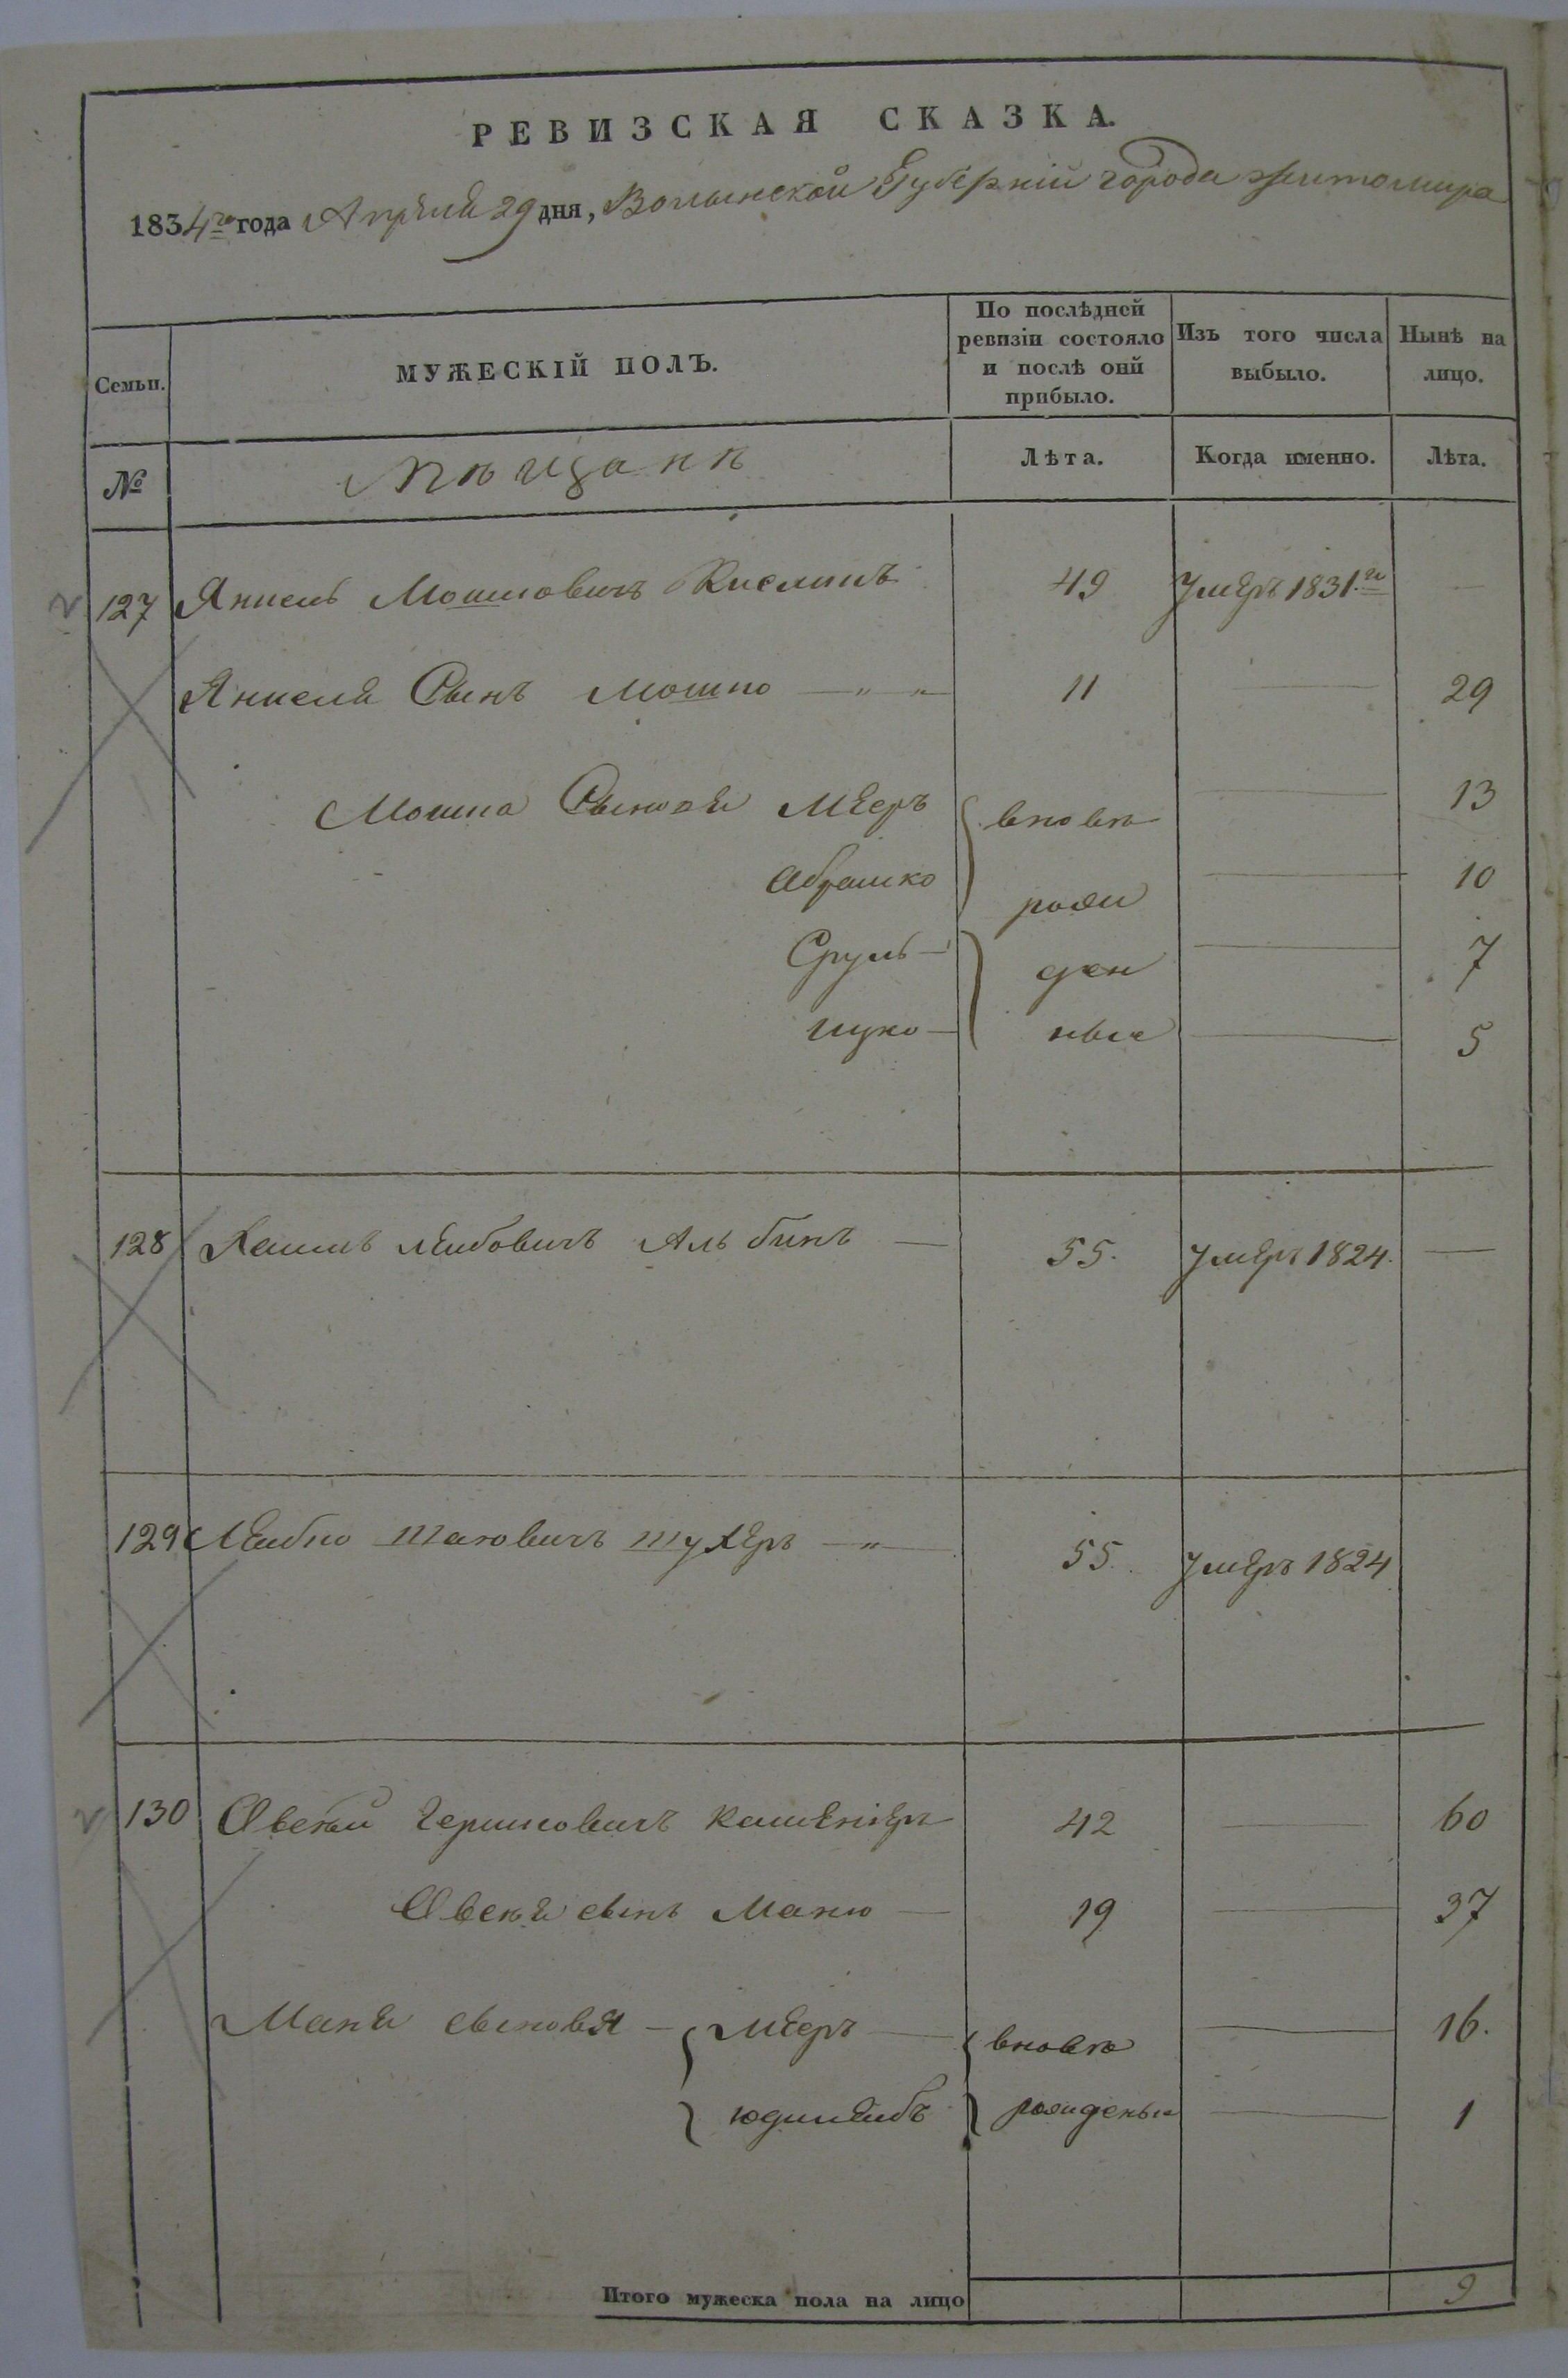 РЕВИЗСКАЯ СКАЗКА.
1834го года Апреля 29 дня, Волынской Губерніи города Житомира
Семьи. МУЖЕСКІЙ ПОЛЪ. По послѣдней ревизіи состояло и послѣ оній прибыло. Изъ того числа выбыло. Нынѣ на лицо.
№ Мѣщанѣ Лѣта. Когда именно. Лѣта.
127 Янкель Мошковичъ 49 Умеръ 1831.го —
Янкеля Сынъ Мошко 11 — 29
Мошка Сыновя Мееръ вновь — 13
Абрамко рож — 10
Сруль ден — 7
Ицко ные — 5
128 Хаимъ Лейбовичъ Альбинъ — 55. умеръ 1824. —
129 Лейбко Шаховичъ 55. умеръ 1824
130 Овсей Гершковичъ 42 — 60
Овсея сынъ Манко — 19 — 37
Манки сыновя — Мееръ — вновь — 16.
юдилейбъ рожденые — 1
Итого мужеска пола на лицо 9